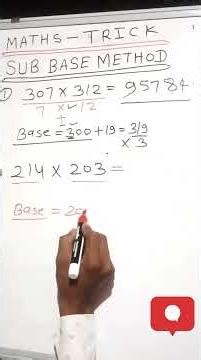 MATHS - TRICK
SUB BASE METHOD
① 307 x 312 = 95784
7 x 12
+
Base = 300 + 19 = 319
x 3
214 x 203 =
Base = 20